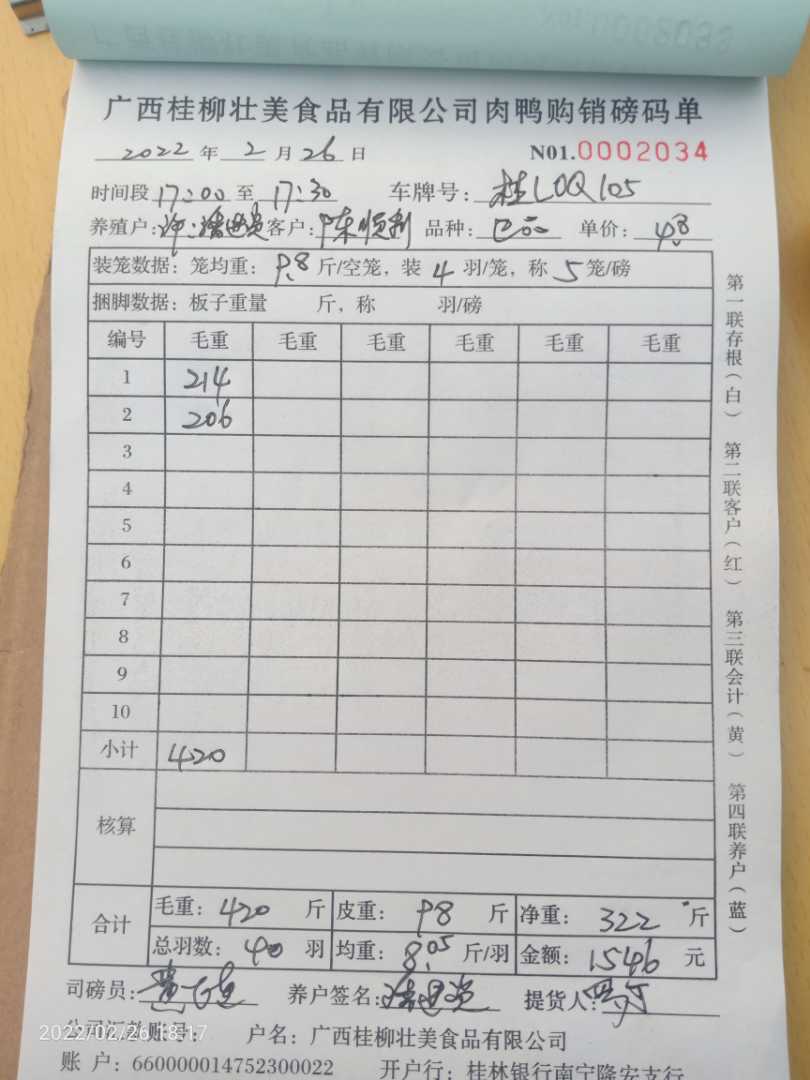 广西桂柳壮美食品有限公司肉鸭购销磅码单
2022 年 2 月 26 日 N01.0002034
时间段 17:00 至 17:30 车牌号: 桂L0Q105
养殖户: 客户: 陈顺利 品种: 单价: 4.8
装笼数据: 笼均重: 9.8 斤/空笼, 装 4 羽/笼, 称 5 笼/磅
捆脚数据: 板子重量 斤, 称 羽/磅
编号 毛重 毛重 毛重 毛重 毛重 毛重
1 214
2 206
3
4
5
6
7
8
9
10
小计 420
核算
合计 毛重: 420 斤 皮重: 98 斤 净重: 322 斤
总羽数: 40 羽 均重: 8.05 斤/羽 金额: 1546 元
司磅员: 养户签名: 提货人:
公司汇款账号: 户名: 广西桂柳壮美食品有限公司
2022/02/26 18:17
账 户: 660000014752300022 开户行: 桂林银行南宁隆安支行
第一联存根(白) 第二联客户(红) 第三联会计(黄) 第四联养户(蓝)